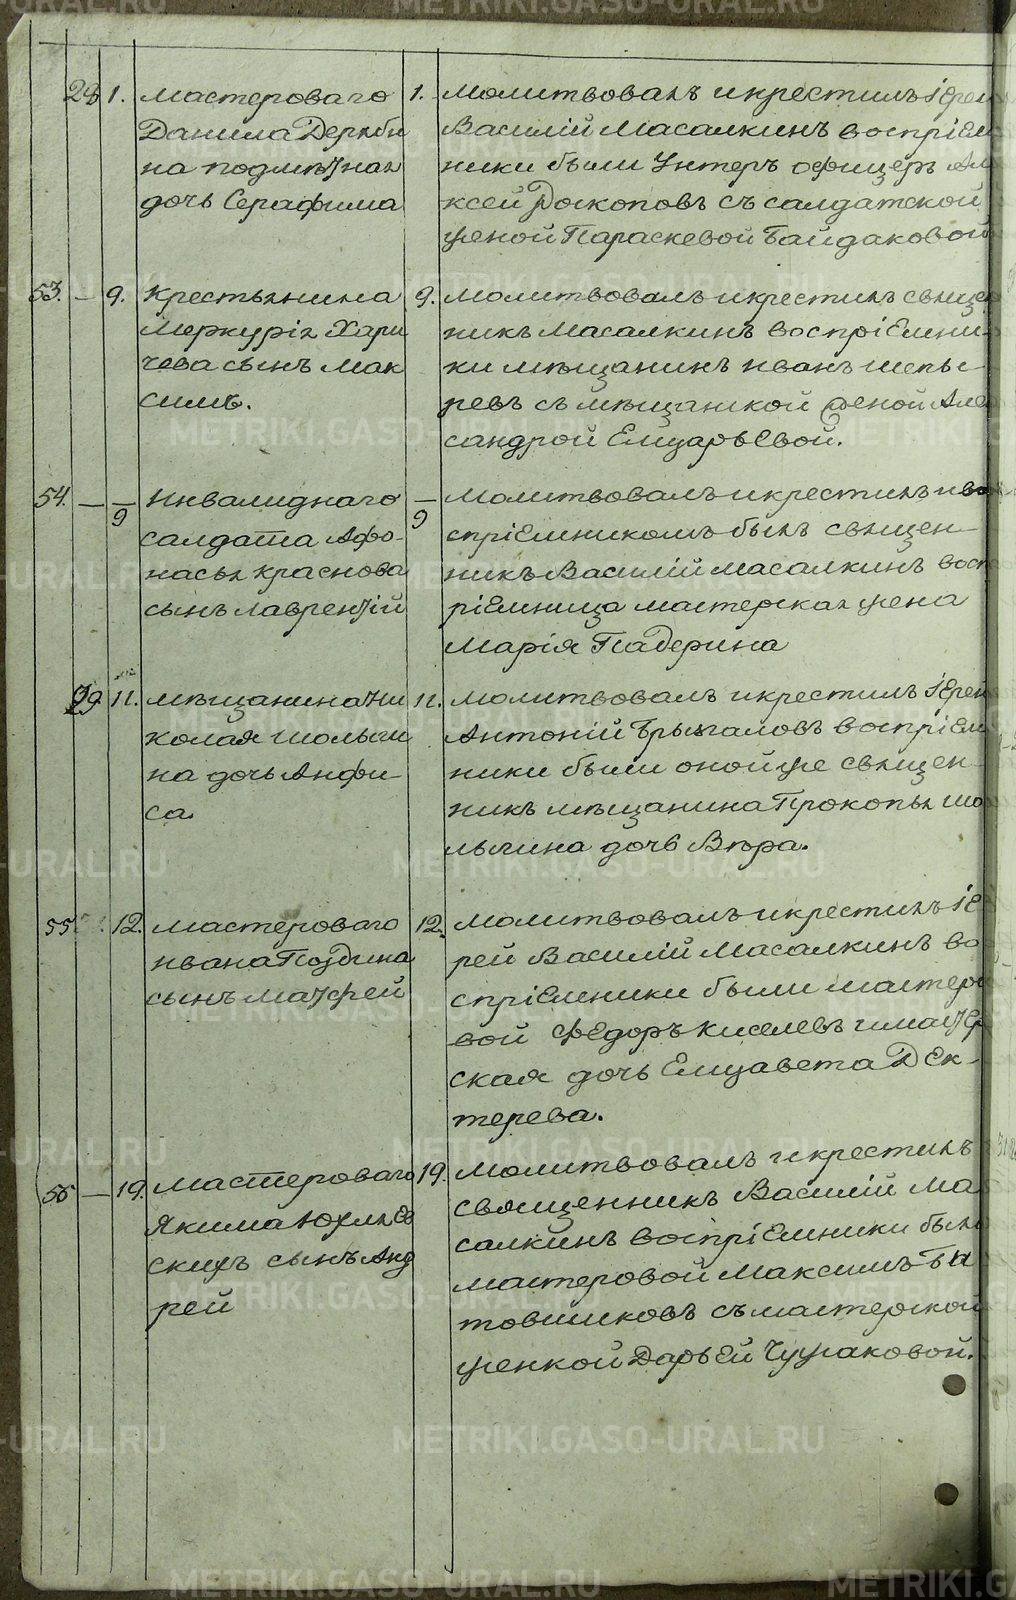 28 1. мастероваго
Данила Деряби
на подмѣтная
дочь Серафима
1. молитвовалъ и крестилъ іерей
Василій Масалкинъ воспріем
ники были Унтеръ офицеръ Але
ксей съ салдатской
женой Параскевой Байдаковой
53. — 9. крестьянина
Меркурія Хари
чева сынъ Мак
симъ.
9. молитвовалъ и крестилъ священ
никъ Масалкинъ воспріемни-
ки мѣщанинъ иванъ
ревъ съ мѣщанской женой Алек
сандрой Елизарьевой.
54. — — 9 Инвалиднаго
салдата Афо-
насья краснова
сынъ лаврентій
— 9 молитвовалъ и крестилъ и во
спріемникомъ былъ священ-
никъ Василій масалкинъ восп
ріемница мастерская жена
Марія Падерина
29 11. мѣщанина Ни
колая шолыги
на дочь Анфи-
са.
11. молитвовалъ и крестилъ іерей
Антоній Брызгаловъ воспріем
ники были оной же священ-
никъ мѣщанина Прокопья шо
лыгина дочь Вѣра.
55 12. мастероваго
ивана Поздина
сынъ матфей
12. молитвовалъ и крестилъ іе
рей Василій Масалкинъ во
спріемники были мастеро
вой Федоръ киселевъ и мастер
ская дочь Елизавета Дек-
терева.
56 — 19. мастероваго
Якима
скихъ сынъ Анд
рей
19. молитвовалъ и крестилъ
священникъ Василій Ма
салкинъ воспріемники были
мастеровой Максимъ Ба
товшиковъ съ мастерской
женкой Дарьей Чужаковой.
METRIKI.GASO-URAL.RU